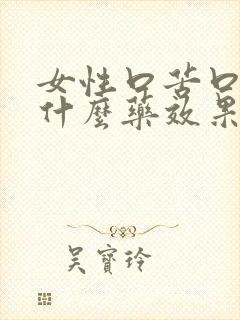 女性口苦口
什麼藥效果
吴寶玲